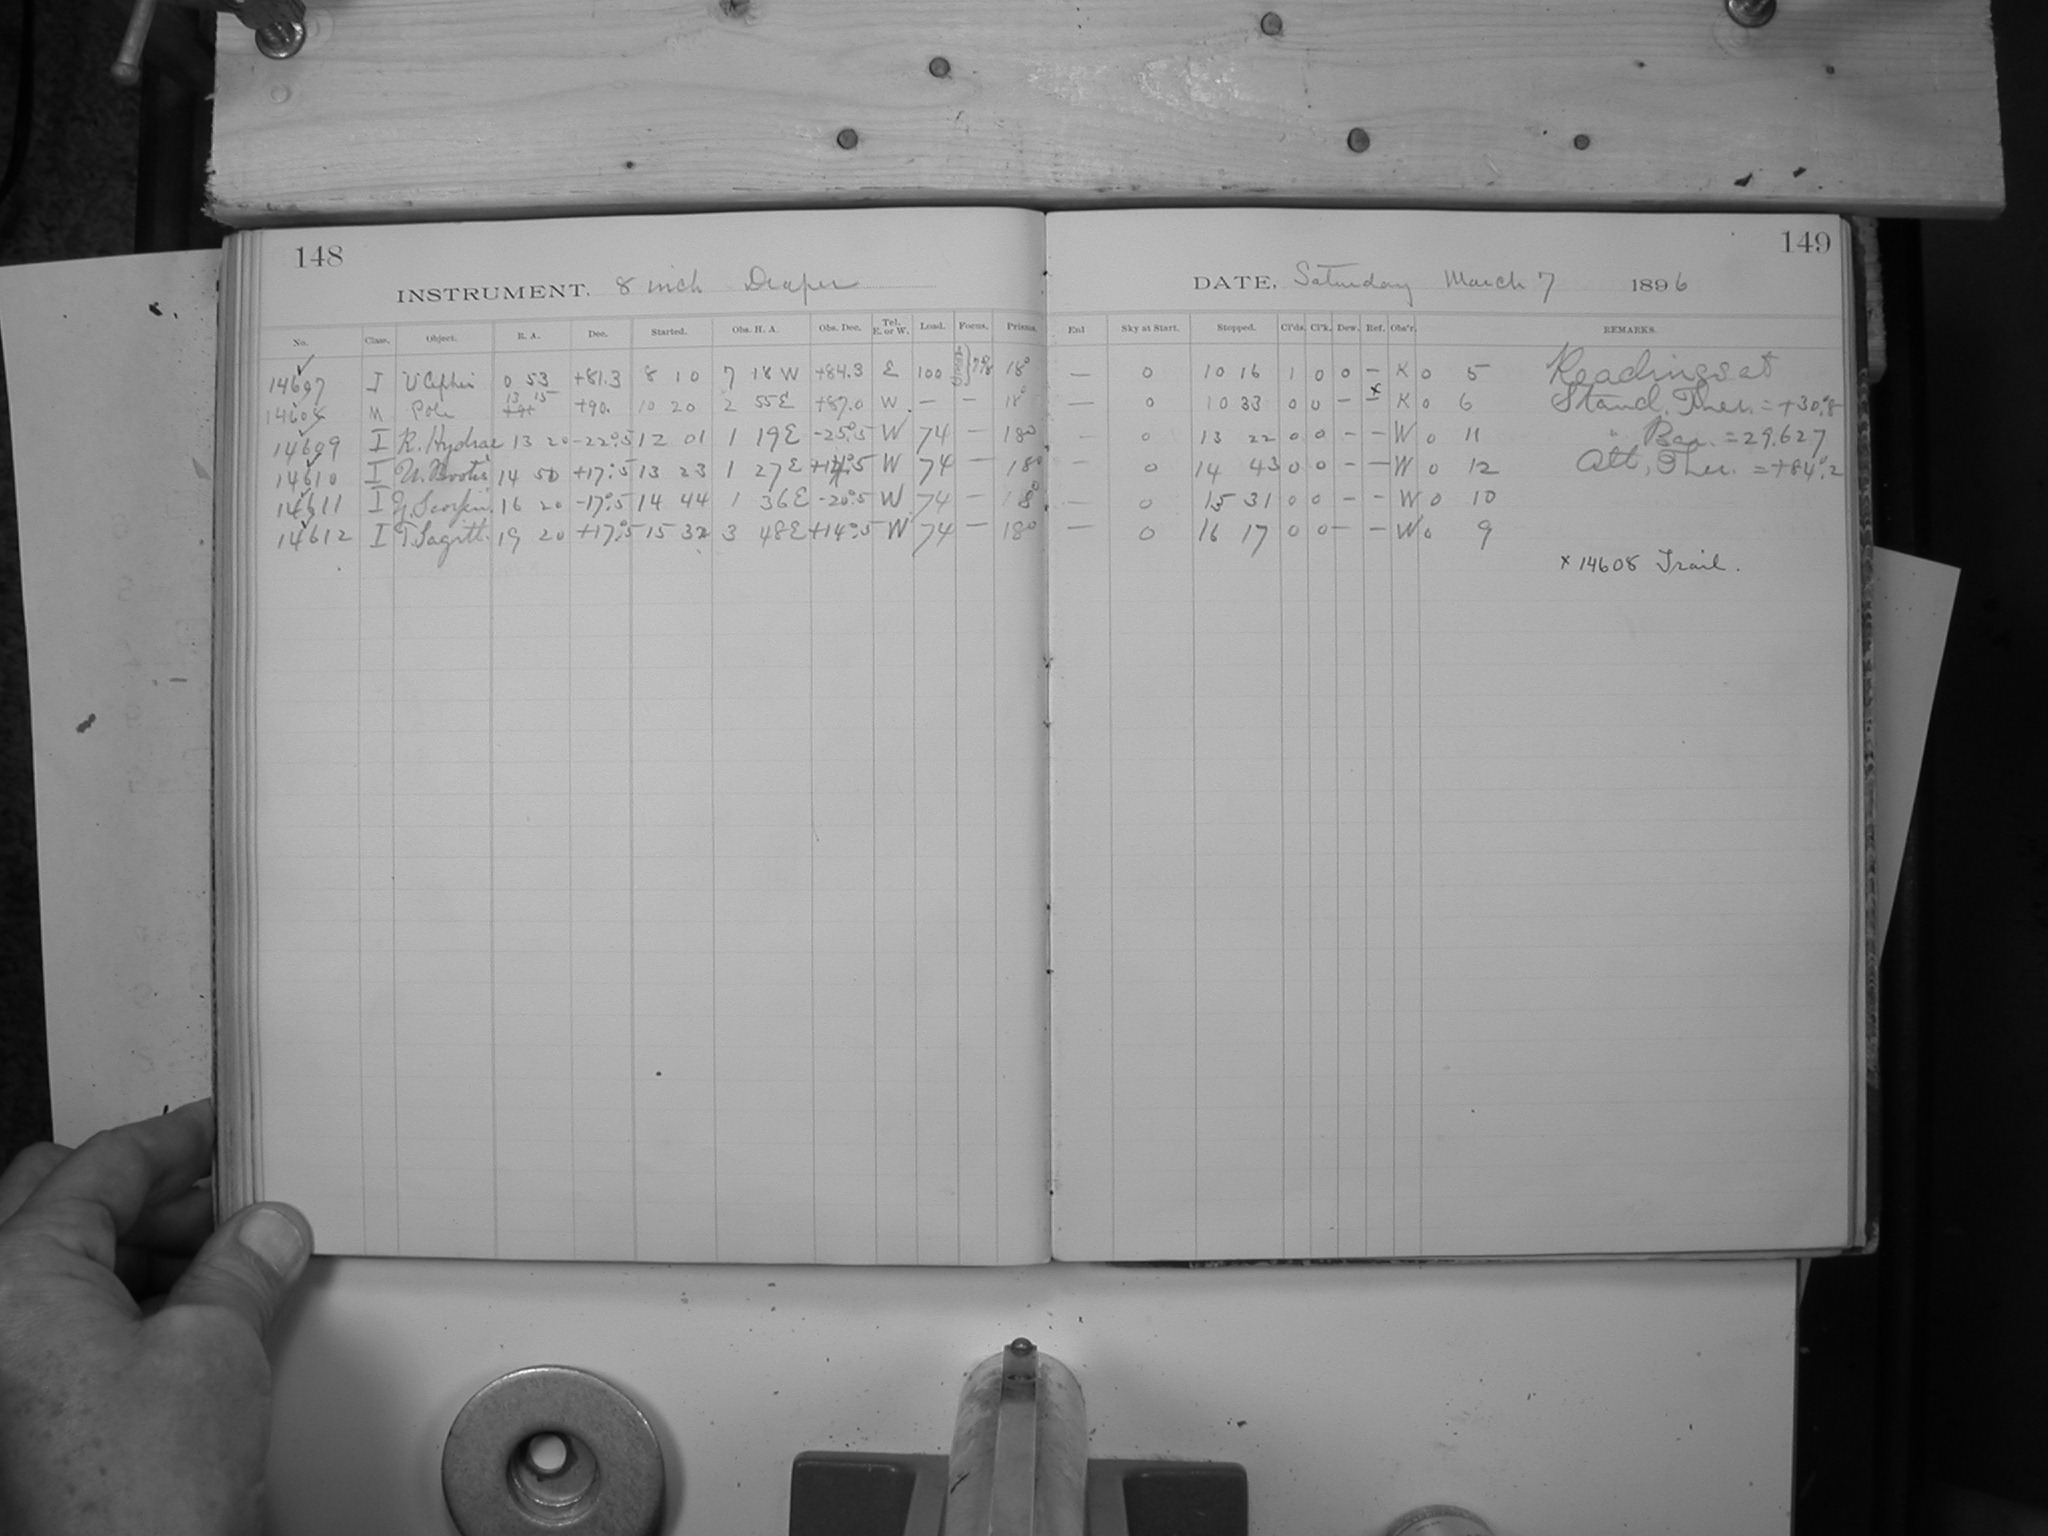 148
INSTRUMENT. 8 inch Draper
No. Class. Object. R. A. Dec. Started. Obs. H. A. Obs. Dec. Tel. E. or W. Load. Focus. Prisms.
14607 I U Cephei 0 53 +81.3 8 10 7 18 W +84.3 E 100 18°
14608 M Pole 13 15 +90. 10 20 2 55 E +87.0 W. — — 18°
14609 I R. Hydrae 13 20 -22°.5 12 01 1 19 E -25°.5 W 74 — 18°
14610 I U. Bootis 14 50 +17°.5 13 23 1 27 E +14°.5 W 74 — 18°
14611 I 16 20 -17°.5 14 44 1 36 E -20°.5 W 74 — 18°
14612 I T. Sagitt. 19 20 +17°.5 15 32 3 48 E +14°.5 W 74 — 18°
149
DATE, Saturday March 7 1896
Enl Sky at Start. Stopped. Cl'ds. Cl'k. Dew. Ref. Obs'r. REMARKS.
— 0 10 16 1 0 0 — K 0 5 Readings at
— 0 10 33 0 0 — x — K 0 6 Stand. Ther. = +30°.8
— 0 13 22 0 0 — — W 0 11 " Bar. = 29.627
— 0 14 43 0 0 — — W 0 12 Att, Ther. = +84°.2
— 0 15 31 0 0 — — W 0 10
— 0 16 17 0 0 — — W 0 9
x 14608 Trail.